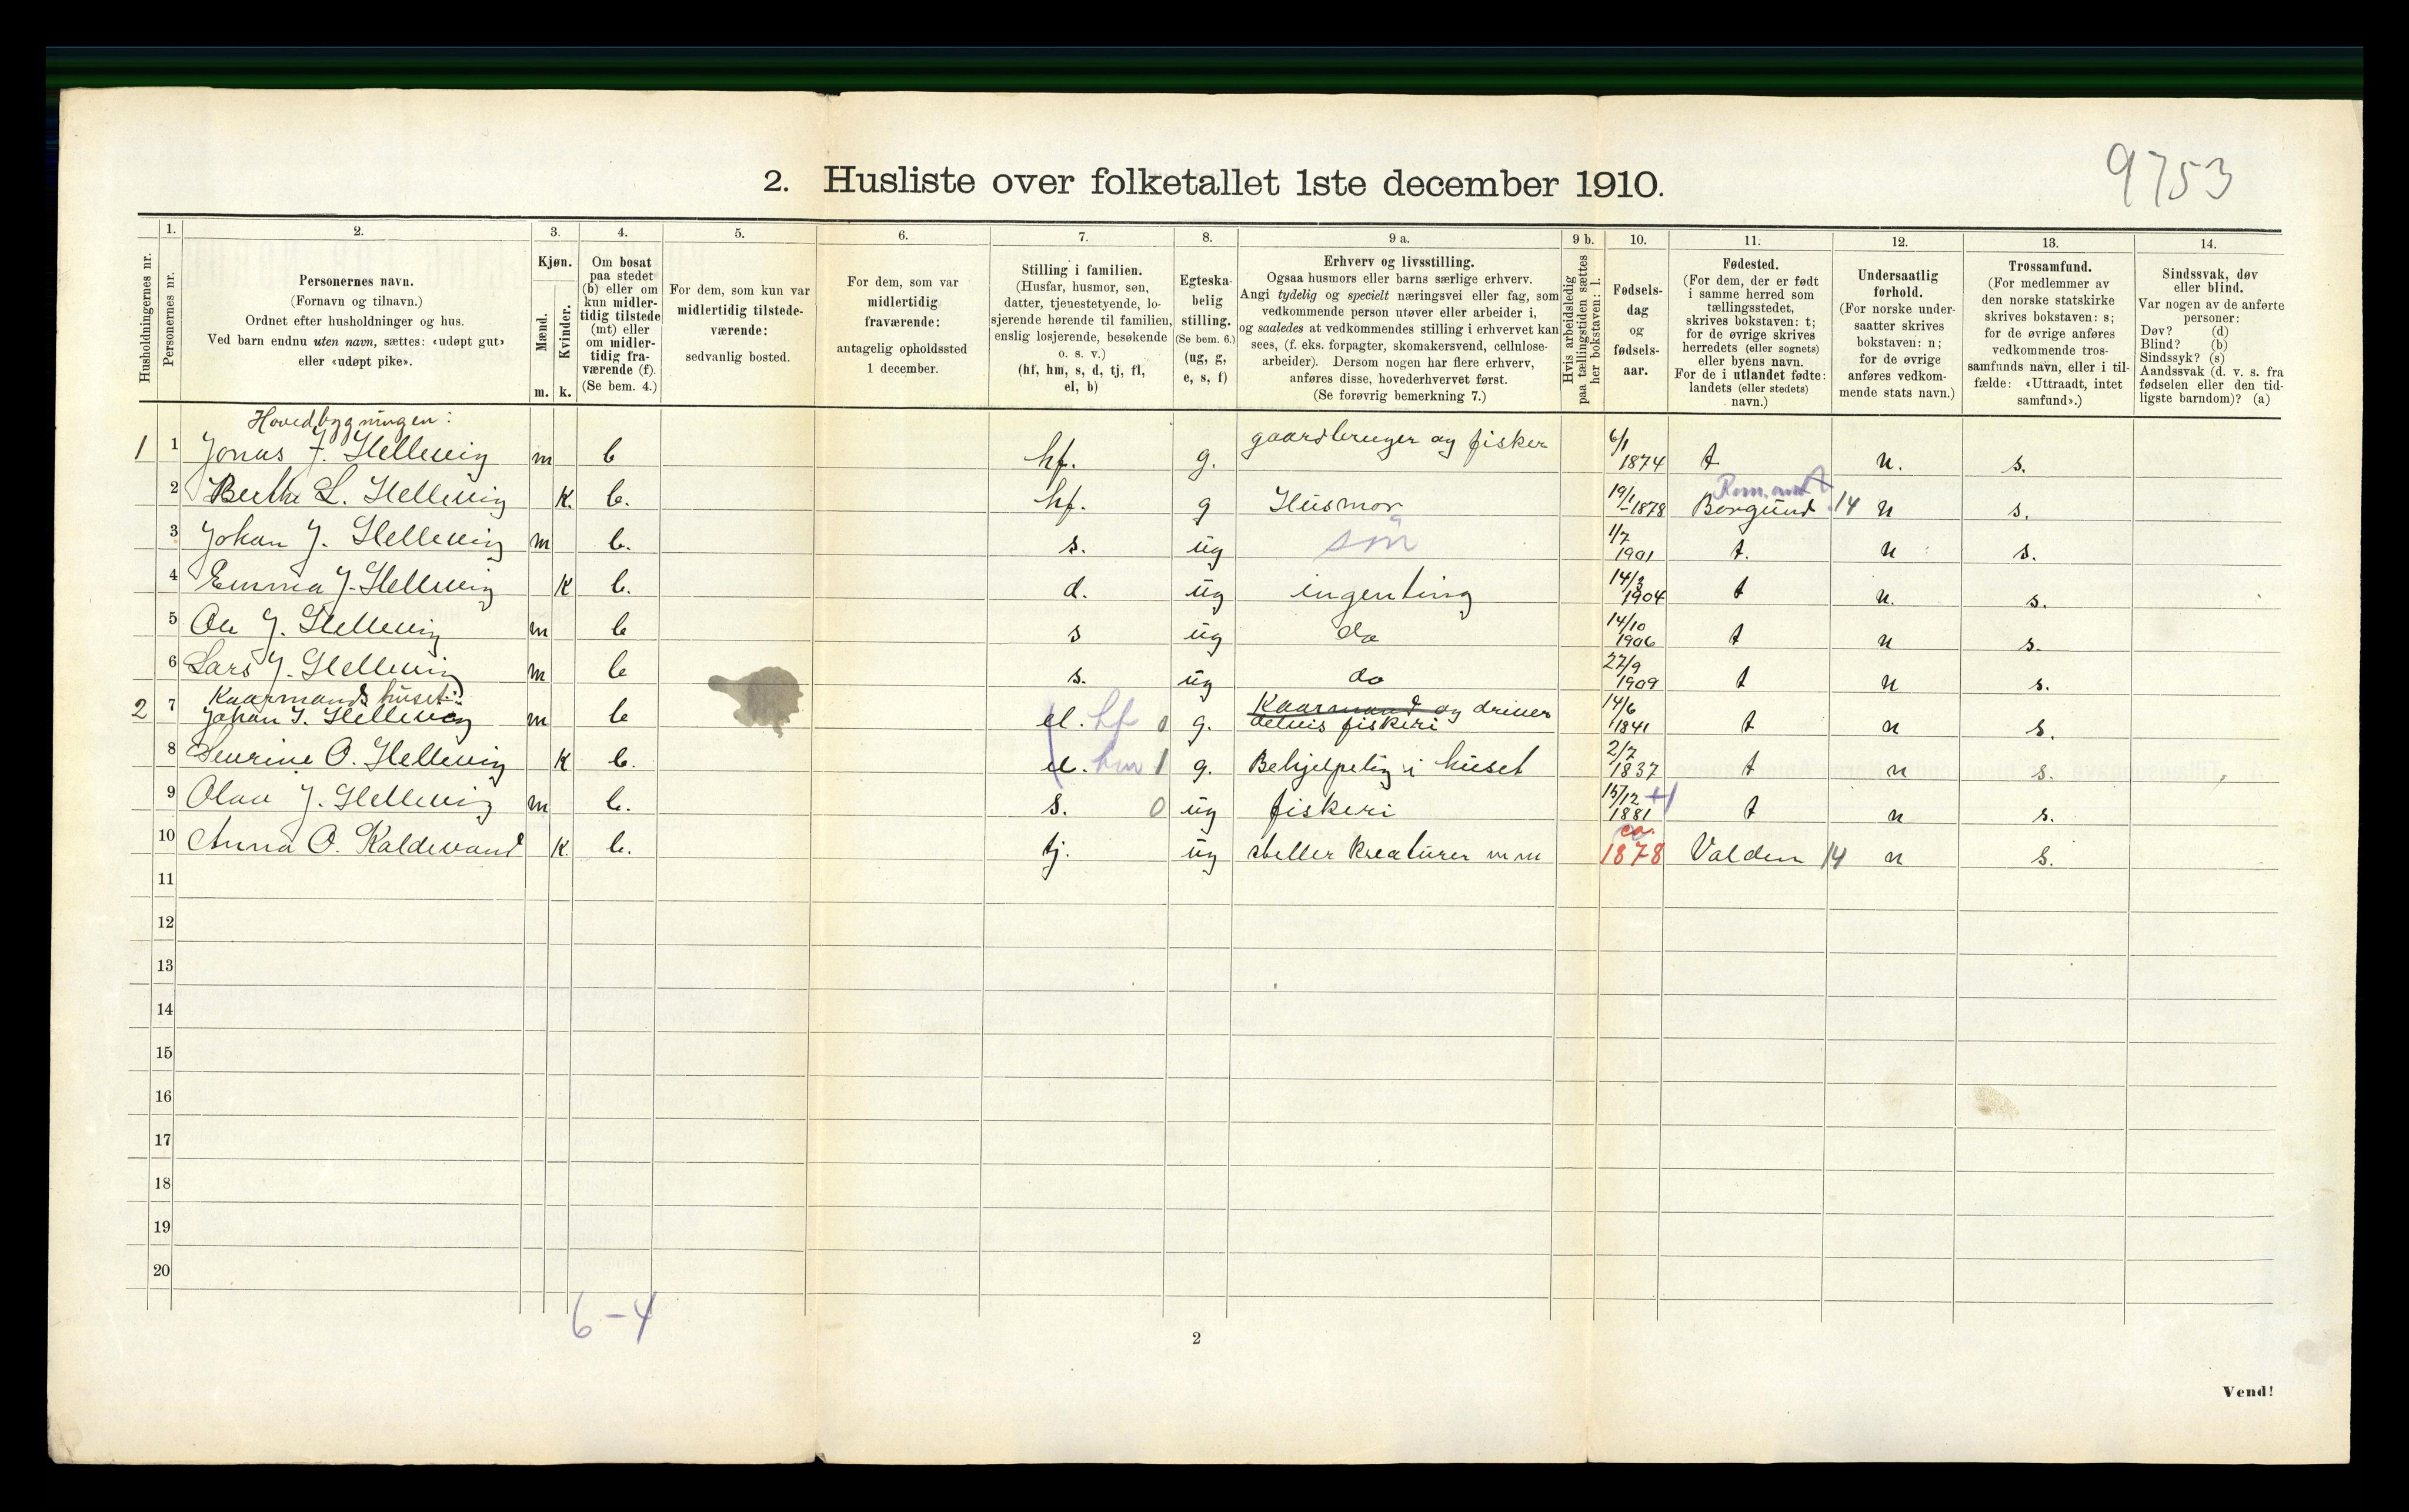 9753
2. Husliste over folketallet 1ste december 1910.
Husholdningernes nr.
1.
Personernes nr.
2.
Personernes navn.
(Fornavn og tilnavn.)
Ordnet efter husholdninger og hus.
Ved barn endnu uten navn, sættes: «udøpt gut»
eller «udøpt pike».
3.
Kjøn.
Mænd.
m.
Kvinder.
k.
4.
Om bosat
paa stedet
(b) eller om
kun midler-
tidig tilstede
(mt) eller
om midler-
tidig fra-
værende (f).
(Se bem. 4.)
5.
For dem, som kun var
midlertidig tilstede-
værende:
sedvanlig bosted.
6.
For dem, som var
midlertidig
fraværende:
antagelig opholdssted
1 december.
7.
Stilling i familien.
(Husfar, husmor, søn,
datter, tjenestetyende, lo-
sjerende hørende til familien,
enslig losjerende, besøkende
o. s. v.)
(hf, hm, s, d, tj, fl,
el, b)
8.
Egteska-
belig
stilling.
(Se bem. 6.)
(ug, g,
e, s, f)
9 a.
Erhverv og livsstilling.
Ogsaa husmors eller barns særlige erhverv.
Angi tydelig og specielt næringsvei eller fag, som
vedkommende person utøver eller arbeider i,
og saaledes at vedkommendes stilling i erhvervet kan
sees, (f. eks. forpagter, skomakersvend, cellulose-
arbeider). Dersom nogen har flere erhverv,
anføres disse, hovederhvervet først.
(Se forøvrig bemerkning 7.)
9 b.
Hvis arbeidsledig
paa tællingstiden sættes
her bokstaven: l.
10.
Fødsels-
dag
og
fødsels-
aar.
11.
Fødested.
(For dem, der er født
i samme herred som
tællingsstedet,
skrives bokstaven: t;
for de øvrige skrives
herredets (eller sognets)
eller byens navn.
For de i utlandet fødte:
landets (eller stedets)
navn.)
12.
Undersaatlig
forhold.
(For norske under-
saatter skrives
bokstaven: n;
for de øvrige
anføres vedkom-
mende stats navn.)
13.
Trossamfund.
(For medlemmer av
den norske statskirke
skrives bokstaven: s;
for de øvrige anføres
vedkommende tros-
samfunds navn, eller i til-
fælde: «Uttraadt, intet
samfund».)
14.
Sindssvak, døv
eller blind.
Var nogen av de anførte
personer:
Døv? (d)
Blind? (b)
Sindssyk? (s)
Aandssvak (d. v. s. fra
fødselen eller den tid-
ligste barndom)? (a)
Hovedbygningen:
1 1 Jonas J. Hellevig m b hf. g. gaardbruger og fisker 6/1 1874 t n. s.
2 Berthe L. Hellevig k. b. hf. g Husmor 19/1 1878 Borgund 14 n s.
3 Johan J. Hellevig m b. s. ug søn 1/7 1901 t. n s.
4 Emma J. Hellevig k b. d. ug ingenting 14/3 1904 t n. s.
5 Ole J. Hellevig m b s ug do 14/10 1906 t n s.
6 Lars J. Hellevig m b s. ug do 27/9 1909 t n s.
Kaarmands huset:
2 7 Johan J. Hellevig m b el. hf 0 g. Kaarmand og driver delvis fiskeri 14/6 1841 t n s.
8 Sevrine O. Hellevig k b. el. hm 1 g. Behjelpelig i huset 2/7 1837 t n s.
9 Olav J. Hellevig m b. s. 0 ug fiskeri 15/12 1881 t n s.
10 Anna O. Kaldevand k. b. tj. ug steller kreaturer m m ca. 1878 Valden 14 n s.
11
12
13
14
15
16
17
18
19
20
6-4
2
Vend!